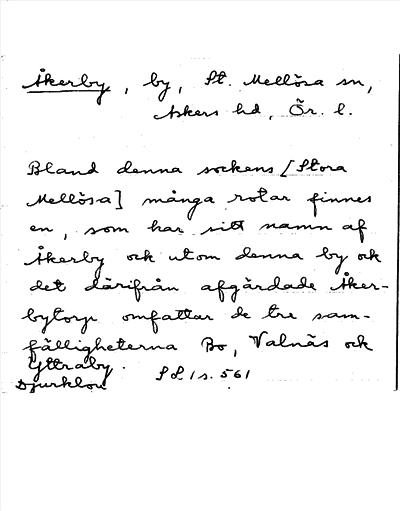 Åkerby, by, St. Mellösa sn,
Askers hd, Ör. l.
Bland denna sockens [Stora
Mellösa] många rotar finnes
en, som har sitt namn af
Åkerby och utom denna by och
det därifrån afgärdade Åker-
bytorp omfattar de tre sam-
fälligheterna Bo, Valnäs och
Yttraby.
Djurklou S d / s. 561